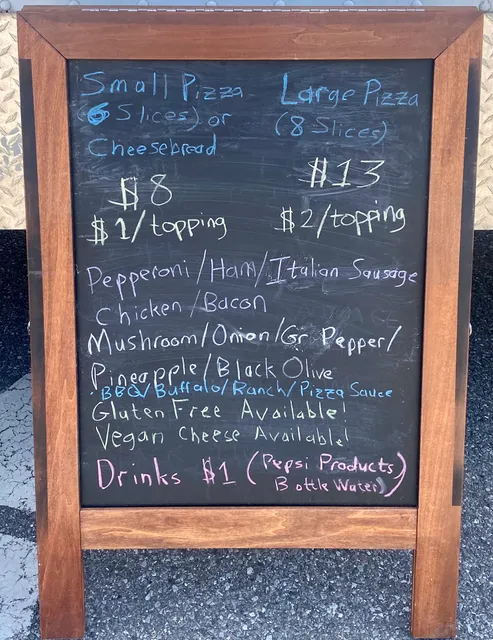 Small Pizza
(6 Slices) or
Cheesebread
$8
$1/topping
Large Pizza
(8 Slices)
$13
$2/topping
Pepperoni/Ham/Italian Sausage
Chicken/Bacon
Mushroom/Onion/Gr Pepper/
Pineapple/Black Olive
BBQ/Buffalo/Ranch/Pizza Sauce
Gluten Free Available!
Vegan Cheese Available!
Drinks $1 (Pepsi Products
Bottle Water)